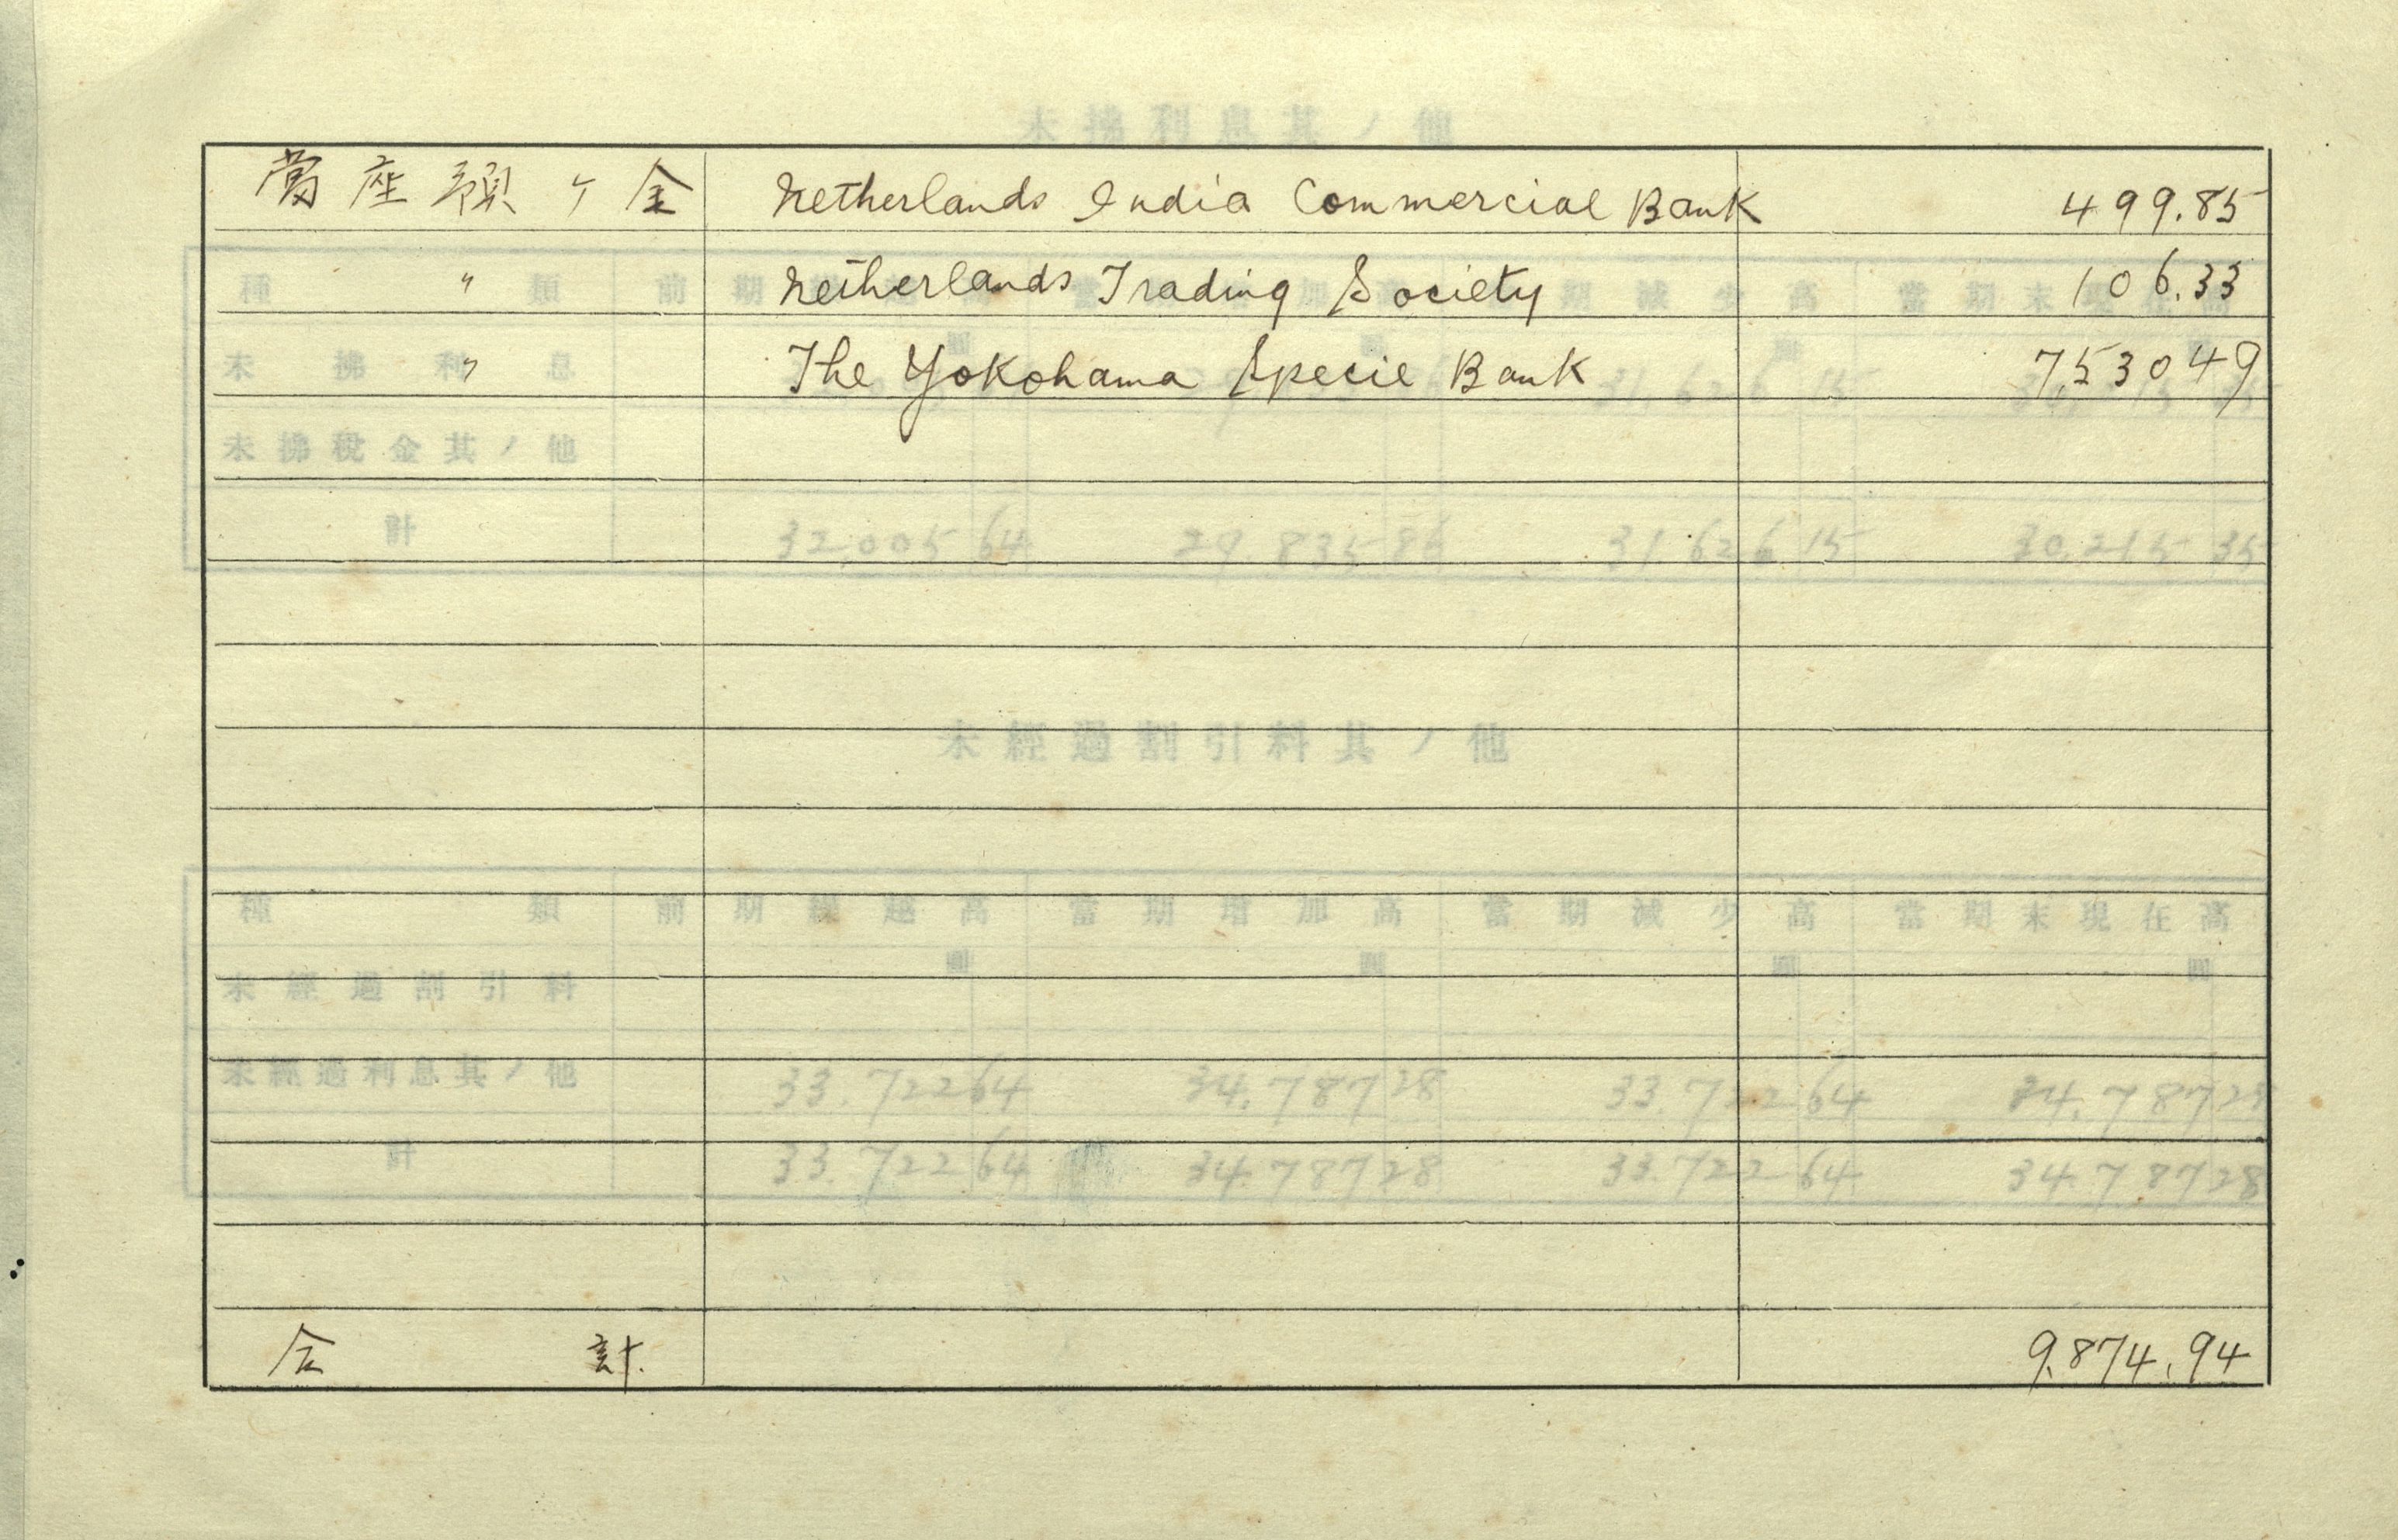 當座預ケ金 Netherlands India Commercial Bank 499.85
〃 Netherlands Trading Society 106.33
〃 The Yokohama Specie Bank 753049
合計. 9.874.94
未拂利息其ノ他
種類 前期 當 加 期減少高 當期末現在高
未拂利息 31,626 15
未拂税金其ノ他
計 32,005 64 29.835 86 31.626 15 30.215 35
未經過割引料其ノ他
種類 前期繰越高 當期増加高 當期減少高 當期末現在高
圓 圓 圓 圓
未經過割引料
未經過利息其ノ他 33.722 64 34.787 28 33.722 64 34.787 28
計 33.722 64 34.787 28 33.722 64 34.787 28